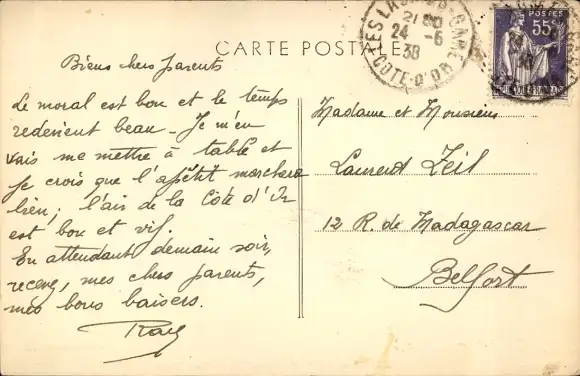 CARTE POSTALE
Biens chers parents
Le moral est bon et le temps
redevient beau - Je m'en
vais me mettre à table et
je crois que l'apétit marchera
bien; l'air de la Côte d'Or
est bon et vif.
En attendant demain soir,
recevez, mes chers parents,
mes bons baisers.
Madame et Monsieur
Laurent Zeil
12 R. de Madagascar
Belfort
24 -6
38
COTE-D'OR
POSTES
55c